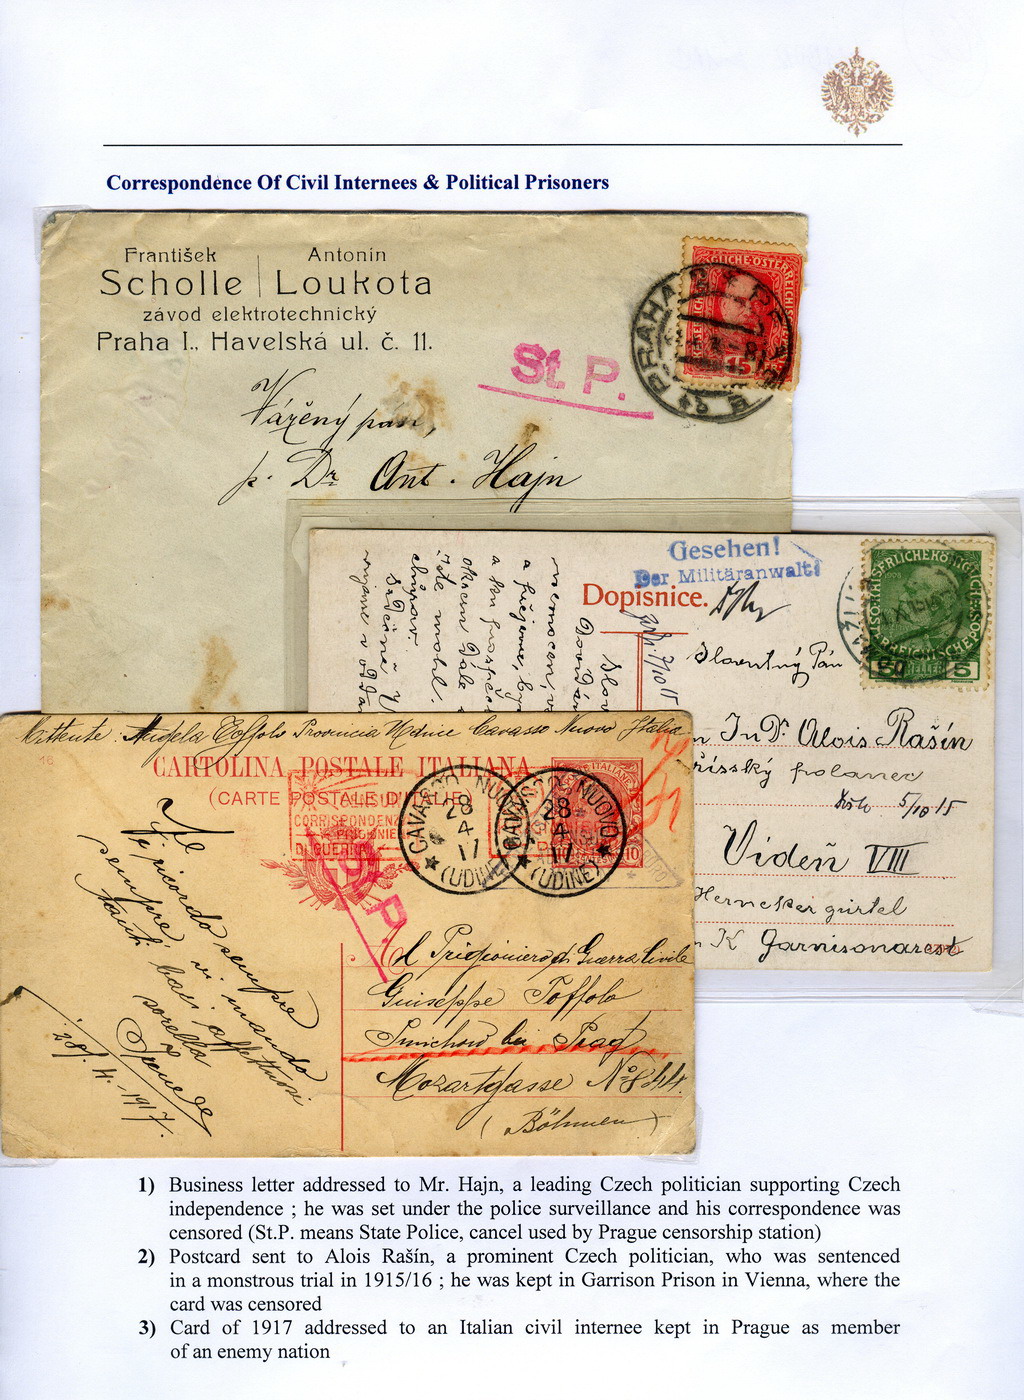 Correspondence Of Civil Internees & Political Prisoners
František
Antonín
Scholle | Loukota
závod elektrotechnický
Praha I., Havelská ul. č. 11.
St. P.
PRAHA
15
Vážený pán,
p. Dr. Ant. Hajn
Gesehen!
Der Militäranwalt:
Dopisnice.
5
HELLER
Slovutný Pán
JnDr Alois Rašín
říšský poslanec
5/10 15
Vídeň VIII
Hernalser gürtel
K. Garnisonarest
Mittente: Angela Toffolo Provincia Udine Cavasso Nuovo Italia
16
CARTOLINA POSTALE ITALIANA
(CARTE POSTALE D'ITALIE)
CORRISPONDENZA
PRIGIONIERI
DI GUERRA
CAVASSO NUOVO
28
4
17
(UDINE)
CAVASSO NUOVO
28
4
17
(UDINE)
10
St. P.
Vi ricordo sempre
sempre vi mando
tanti baci affettuosi
sorella
28/.4.-1917.
Al Prigioniero di Guerra Civile
Guiseppe Toffolo
Smichow bei Prag
Mozartgasse No 844.
(Böhmen)
1) Business letter addressed to Mr. Hajn, a leading Czech politician supporting Czech
independence ; he was set under the police surveillance and his correspondence was
censored (St.P. means State Police, cancel used by Prague censorship station)
2) Postcard sent to Alois Rašín, a prominent Czech politician, who was sentenced
in a monstrous trial in 1915/16 ; he was kept in Garrison Prison in Vienna, where the
card was censored
3) Card of 1917 addressed to an Italian civil internee kept in Prague as member
of an enemy nation